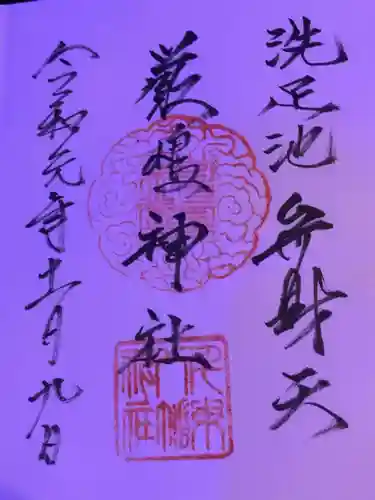 洗足池 弁財天
厳嶋神社
令和元年十一月九日